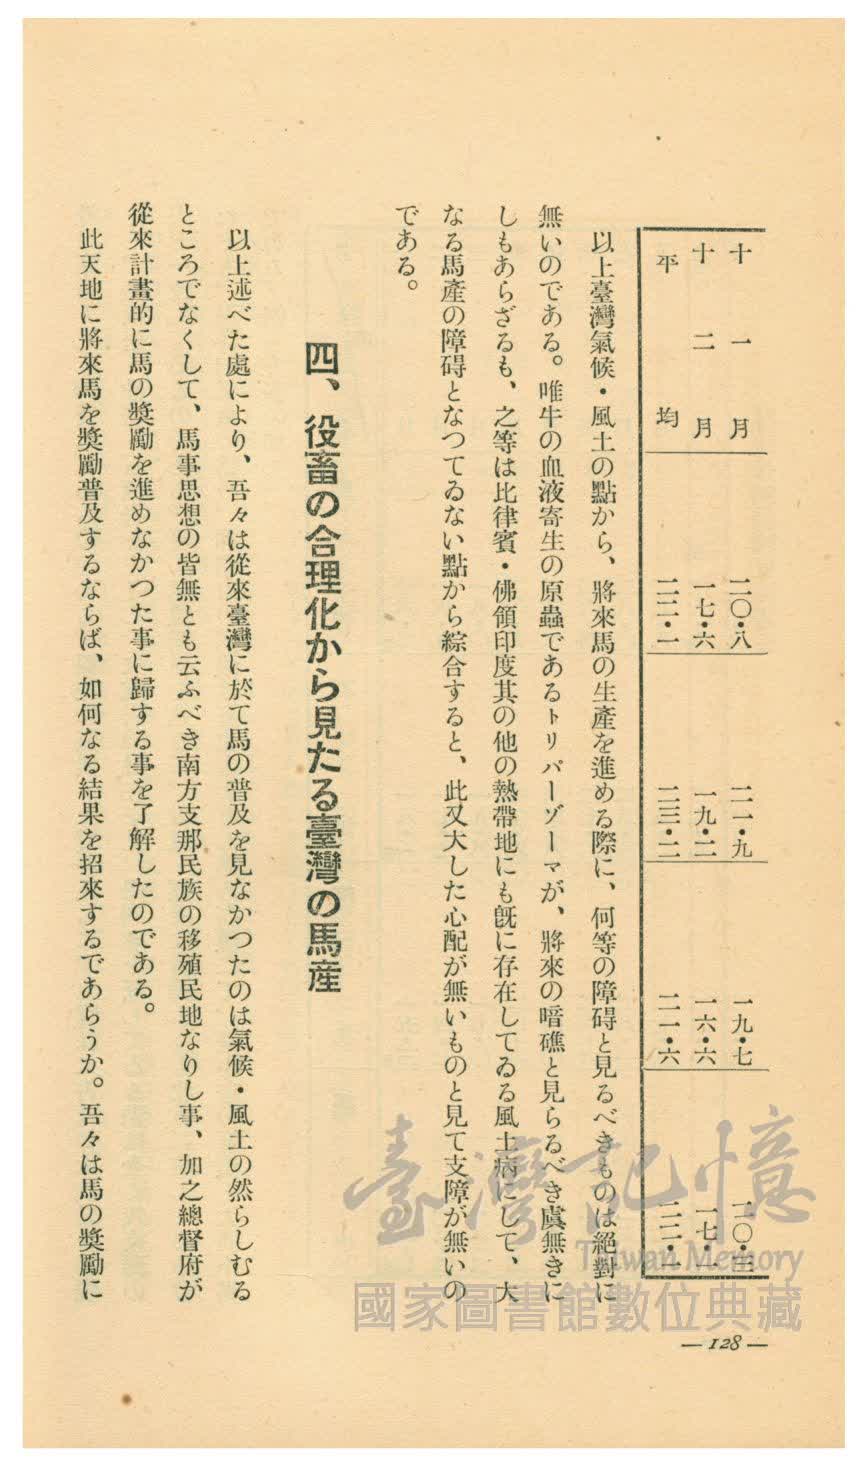 十一月 二〇・八 二一・九 一九・七 二〇・三
十二月 一七・六 一九・二 一六・六 一七・一
平均 二二・一 二三・二 二一・六 二二・二
以上臺灣氣候・風土の點から、將來馬の生產を進める際に、何等の障碍と見るべきものは絕對に
無いのである。唯牛の血液寄生の原蟲であるトリパーゾーマが、將來の暗礁と見らるべき虞無きに
しもあらざるも、之等は比律賓・佛領印度其の他の熱帶地にも旣に存在してゐる風土病にして、大
なる馬產の障碍となつてゐない點から綜合すると、此又大した心配が無いものと見て支障が無いの
である。
四、役畜の合理化から見たる臺灣の馬產
以上述べた處により、吾々は從來臺灣に於て馬の普及を見なかつたのは氣候・風土の然らしむる
ところでなくして、馬事思想の皆無とも云ふべき南方支那民族の移殖民地なりし事、加之總督府が
從來計畫的に馬の奬勵を進めなかつた事に歸する事を了解したのである。
此天地に將來馬を奬勵普及するならば、如何なる結果を招來するであらうか。吾々は馬の奬勵に
— 128 —
臺灣記憶
Taiwan Memory
國家圖書館數位典藏